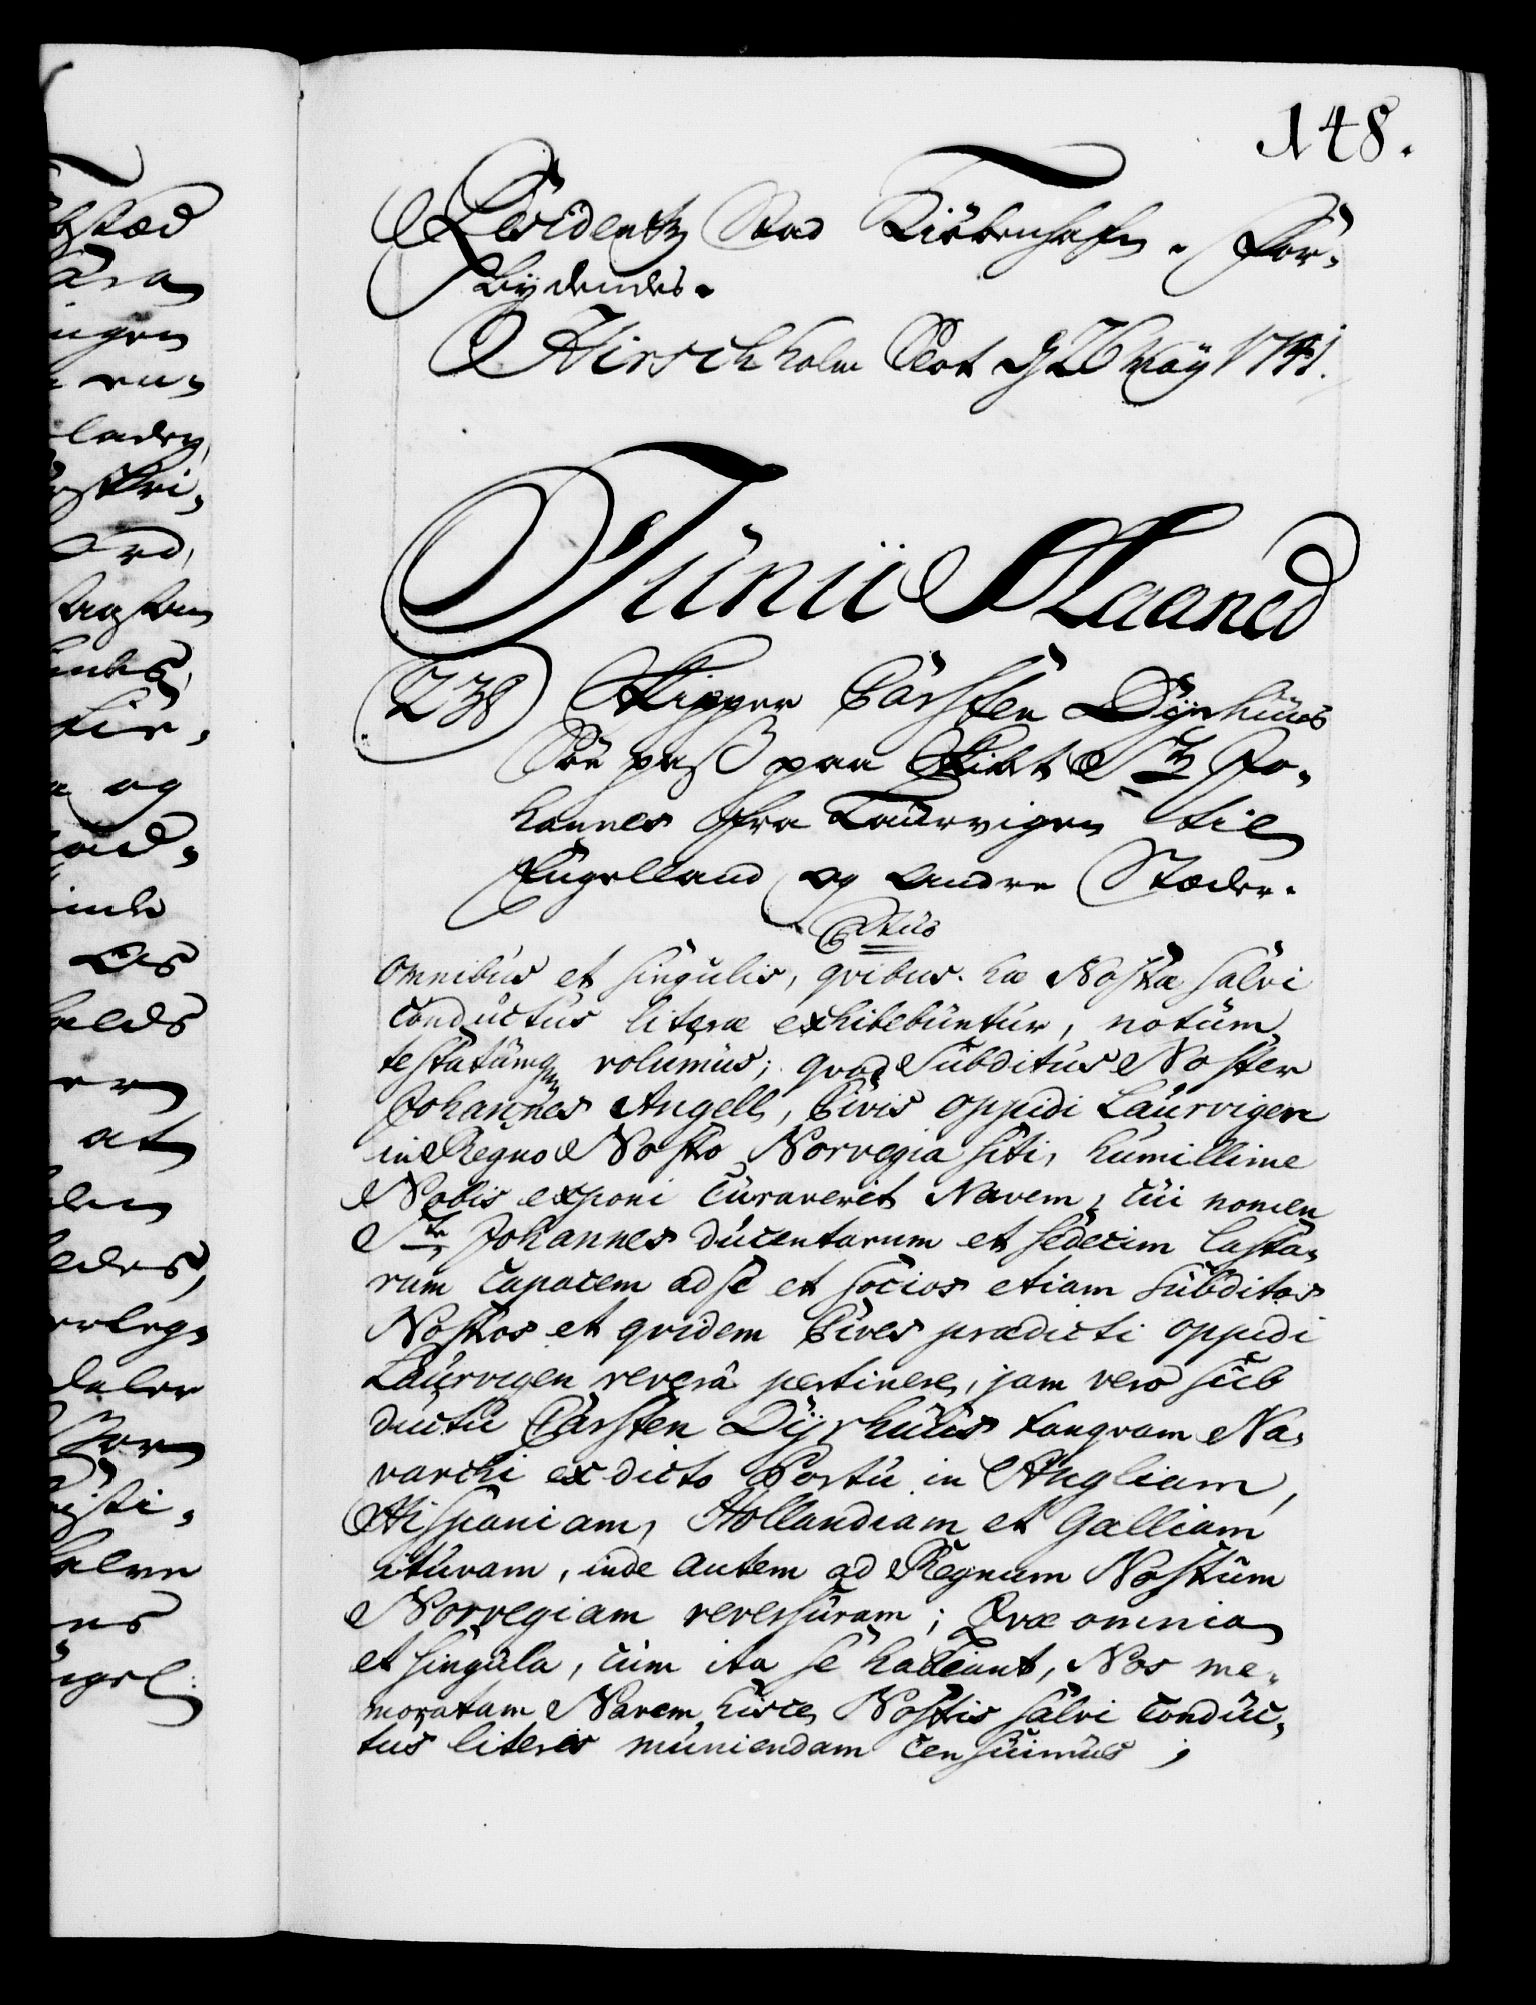 148.
Residentz Stad Kiöbenhafn. For-
bydendes.
Hirschholm Slot d 26 Maÿ 1741.
Junii Maaned
238 Skipper Carsten Dÿrhuus
Söe pass paa Skibet St Jo-
hannes fra Laurvigen til
Engelland og andre Stæder.
Ctus
Omnibus et singulis, qvibus hæ Nostræ salvi
conductus literæ exhibebuntur, notum
testatumqve volumus; qvod Subditus Noster
Johannes Angell, Civis oppidi Laurvigen
in Regno Nostro Norvegia siti, humillime
Nobis exponi curaverit Navem, cui nomen
St Johannes ducentarum et sedecim lasta-
rum capacem ad se et socios etiam subditos
Nostros et qvidem Cives prædicti oppidi
Laurvigen reverâ pertinere, jam vero sub
ductu Carsten Dÿrhuus tanqvam Na-
varchi ex dicto Portu in Angliam,
Hispaniam, Hollandiam et Galliam
ituram, inde autem ad Regnum Nostrum
Norvegiam reversuram; Qvæ omnia
et singula, cum ita se habeant, Nos me-
moratam Navem hisce Nostris salvi conduc-
tus literis muniendam censuimus;